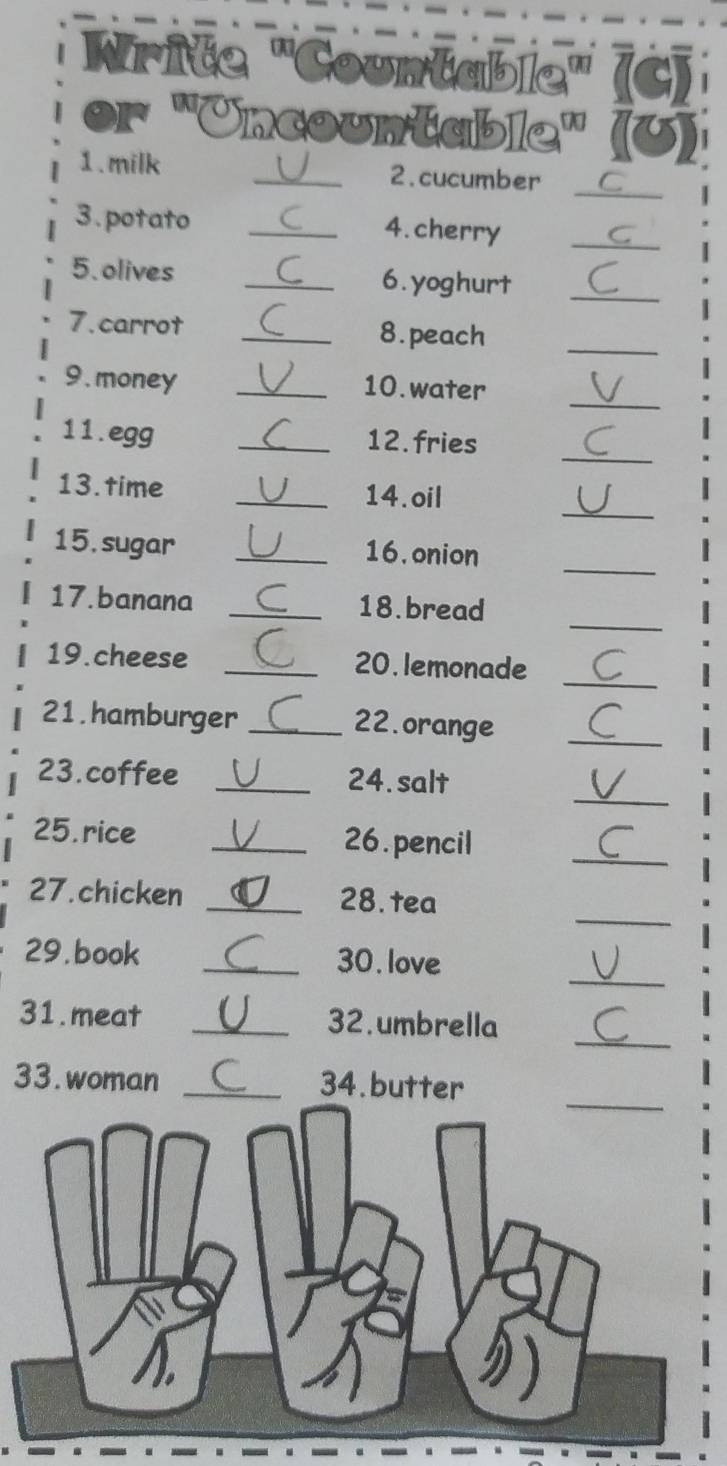 Write "Countable" (C)
or "Uncountable" (U)
1.milk U 2.cucumber C
3.potato C 4.cherry C
5.olives C 6.yoghurt C
7.carrot C 8.peach
9.money U 10.water U
11.egg C 12.fries C
13.time U 14.oil U
15.sugar U 16.onion
17.banana C 18.bread
19.cheese C 20.lemonade C
21.hamburger C 22.orange C
23.coffee U 24.salt U
25.rice U 26.pencil C
27.chicken U 28.tea
29.book C 30.love U
31.meat U 32.umbrella C
33.woman C 34.butter